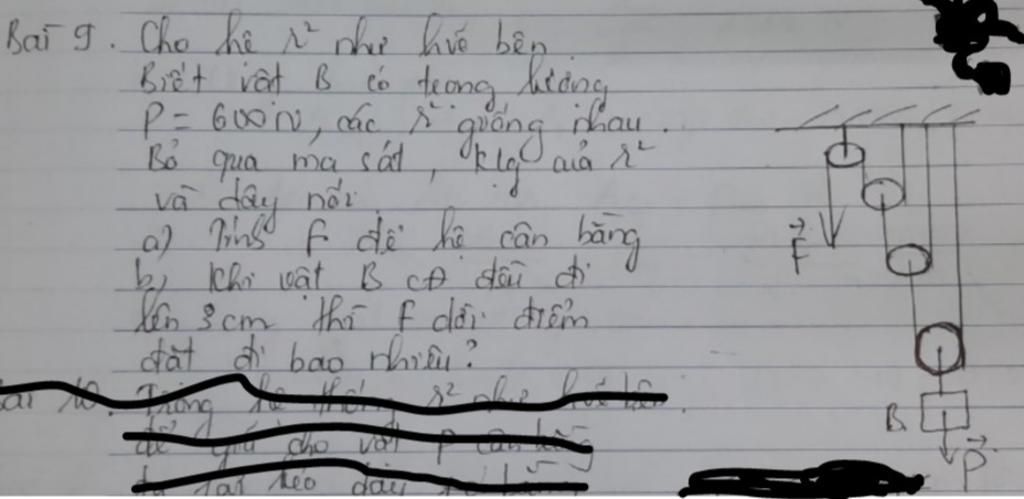 Bài 9. Cho hệ r² như hvẽ bên
Biết vật B có trọng lượng
P = 600N, các r² giống nhau.
Bỏ qua ma sát, klg của r²
và dây nối
a) Tính F để hệ cân bằng
b) Khi vật B cđ đều đi
lên 3cm thì F dời điểm
đặt đi bao nhiêu?
F
B
P